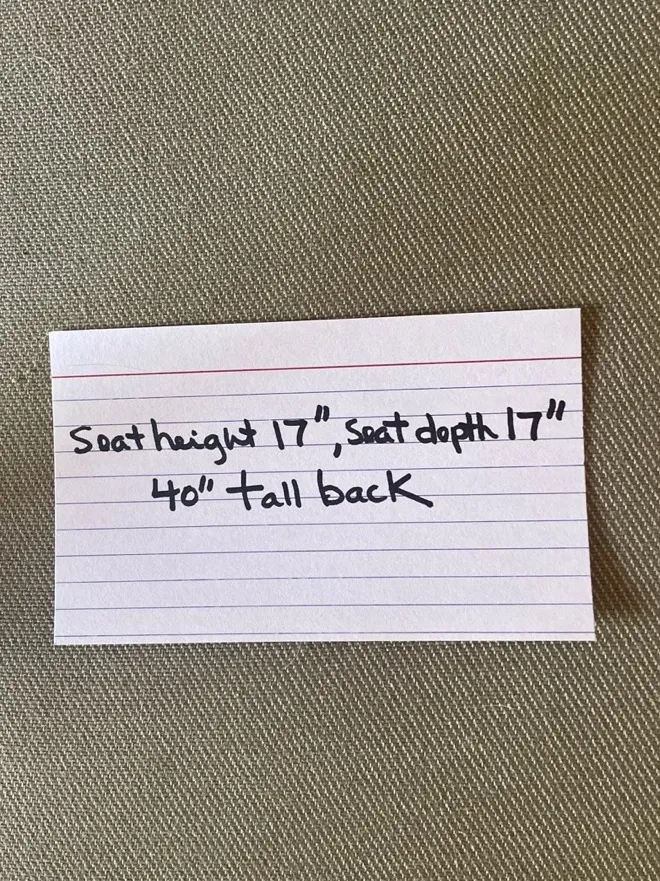 Seat height 17", Seat depth 17"
40" tall back